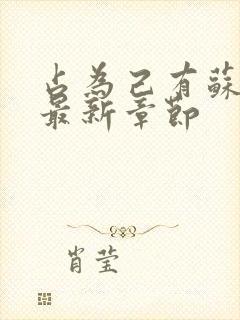 占為己有蘇
最新章節
肖莹